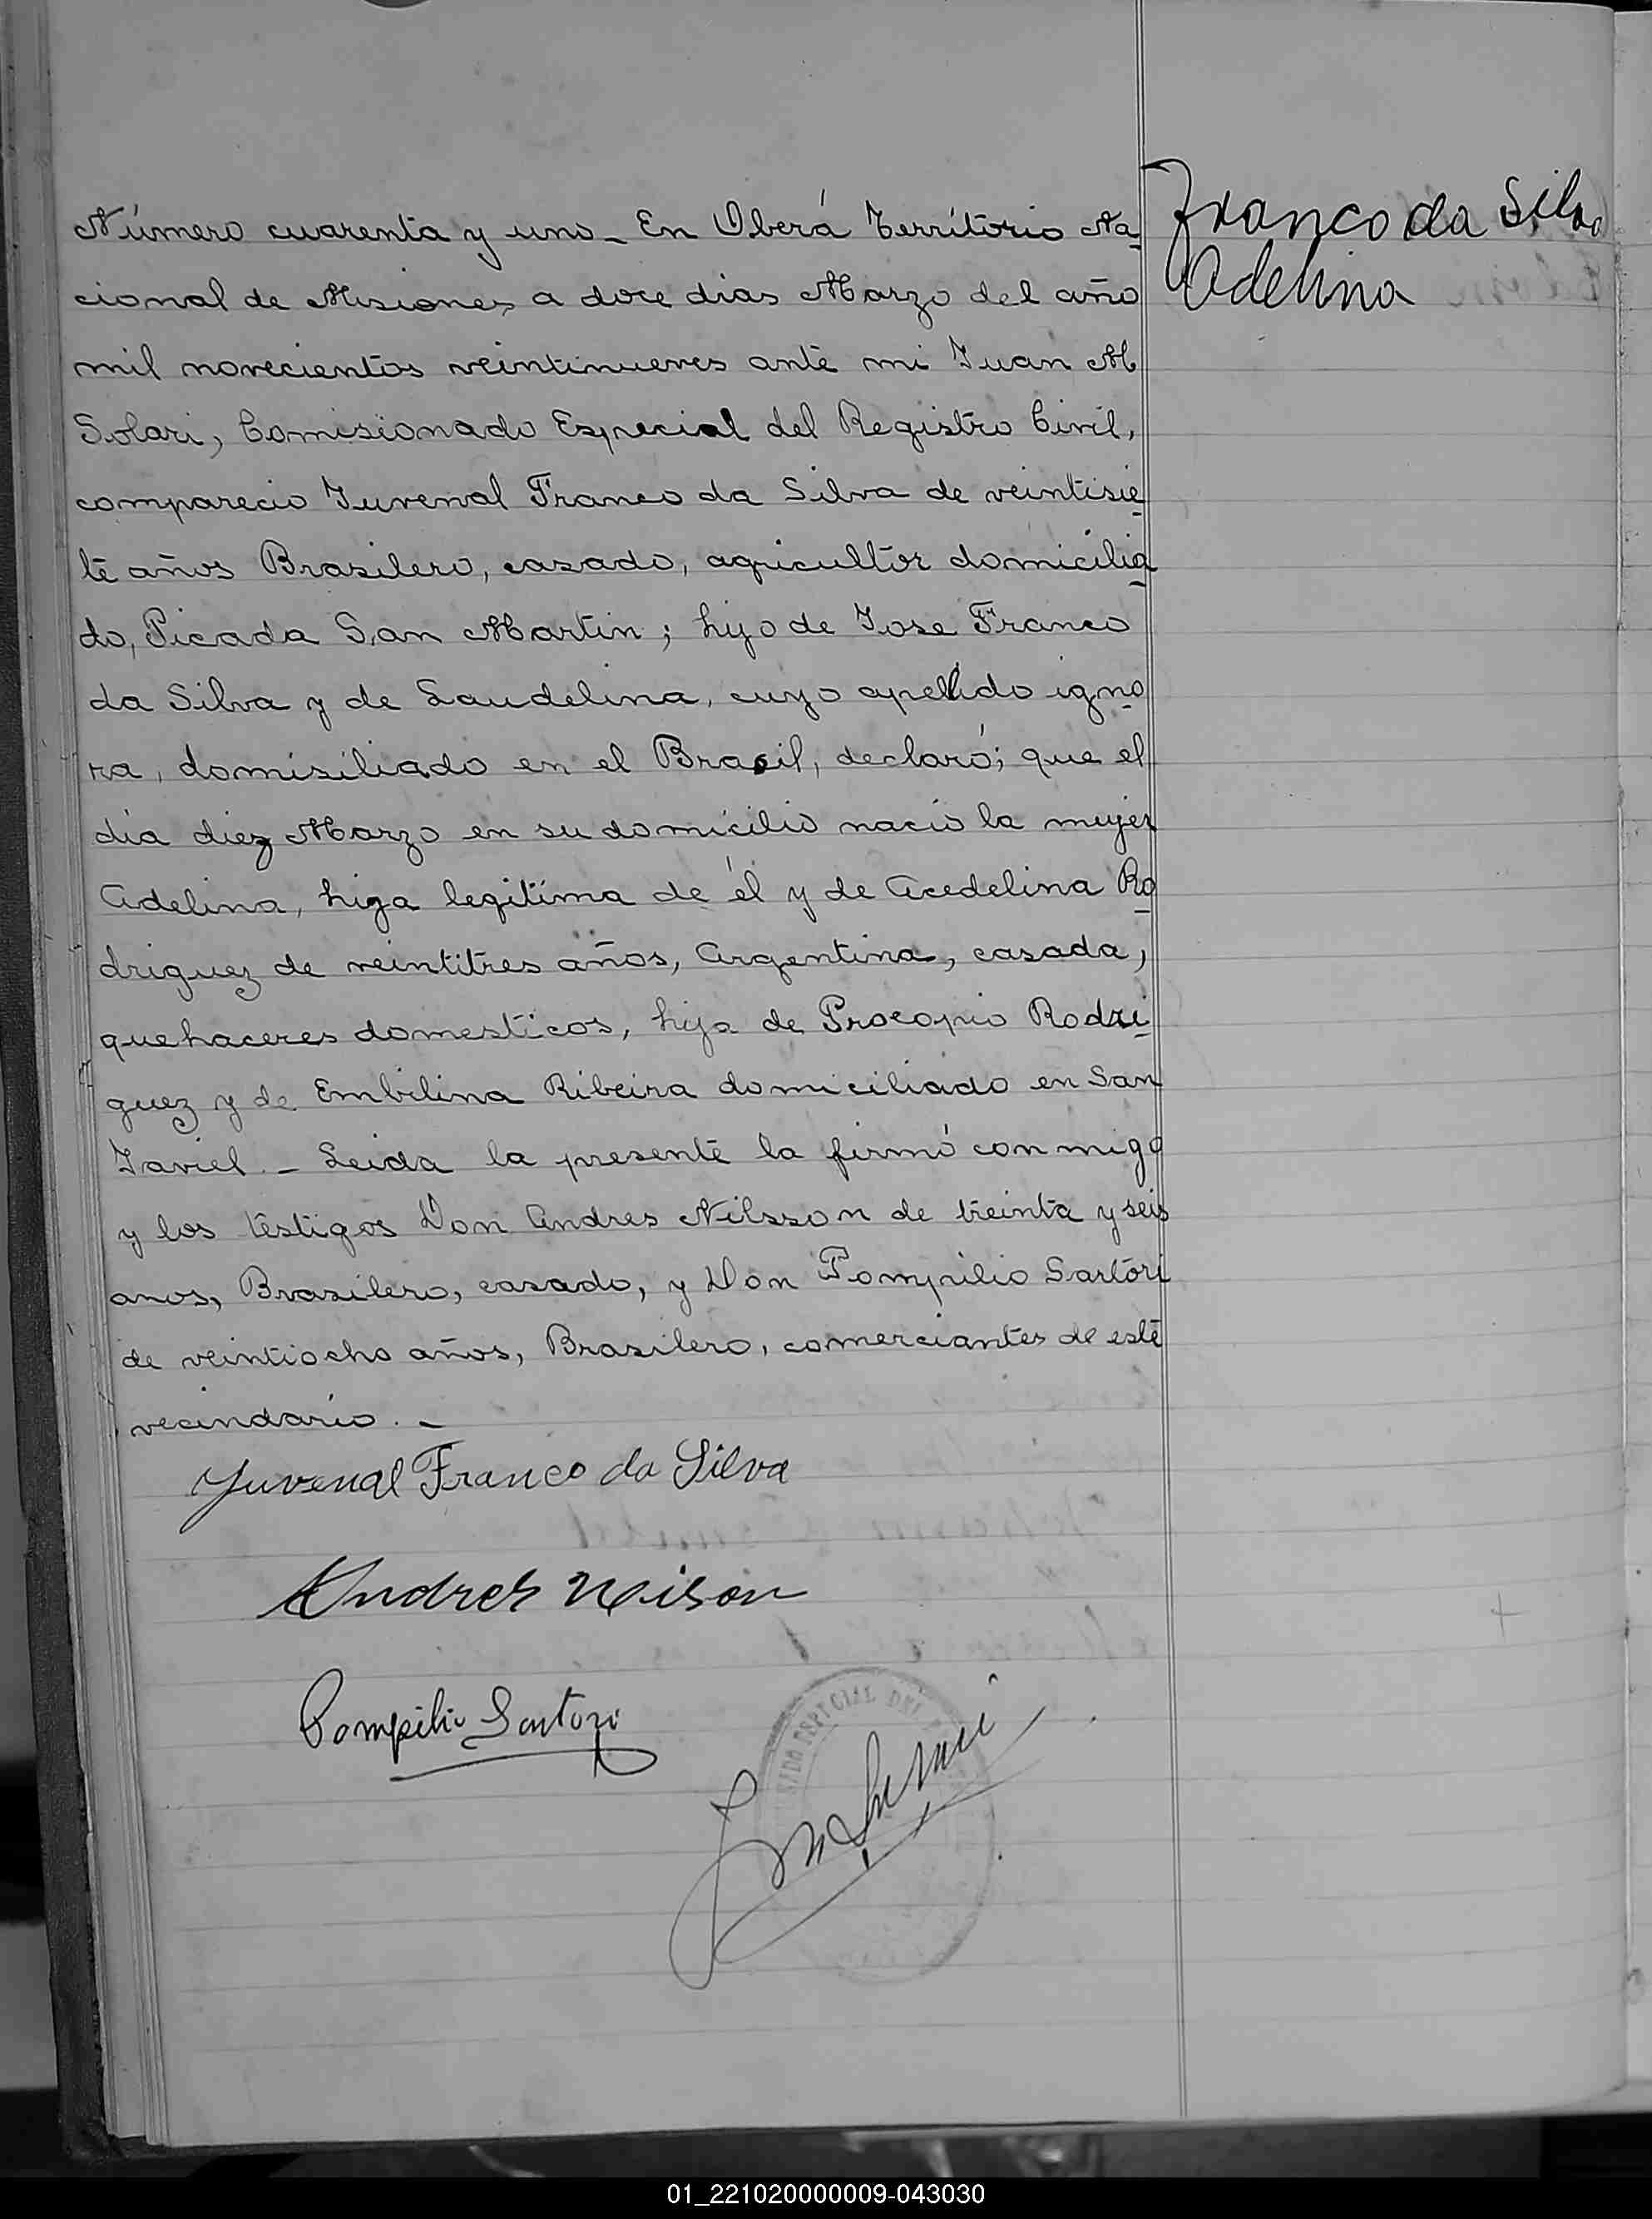 Número cuarenta y uno - En Oberá Territorio Na-
cional de Misiones, a doce dias Marzo del año
mil novecientos veintinueves ante mi Juan M
Solari, Comisionado Especial del Registro Civil,
comparecio Juvenal Franco da Silva de veintisie-
te años Brasilero, casado, agricultor domicilia-
do, Picada San Martin; hijo de Jose Franco
da Silva y de Laudelina, cuyo apellido igno-
ra, domisiliado en el Brasil, declaró; que el
dia diez Marzo en su domicilio nacio la mujer
Adelina, higa legitima de él y de Acedelina Ro-
driguez de veintitres años, Argentina, casada,
quehaceres domesticos, hija de Procopio Rodri-
guez y de Embilina Ribeira domiciliado en San
Javiel. - Leida la presente la firmó conmigo
y los testigos Don Andres Nilsson de treinta y seis
anos, Brasilero, casado, y Don Pompilio Sartori
de veintiocho años, Brasilero, comerciantes de este
vecindario. -
Franco da Silva
Adelina
Juvenal Franco da Silva
Andres Neison
Pompilio Sartori
01_221020000009-043030